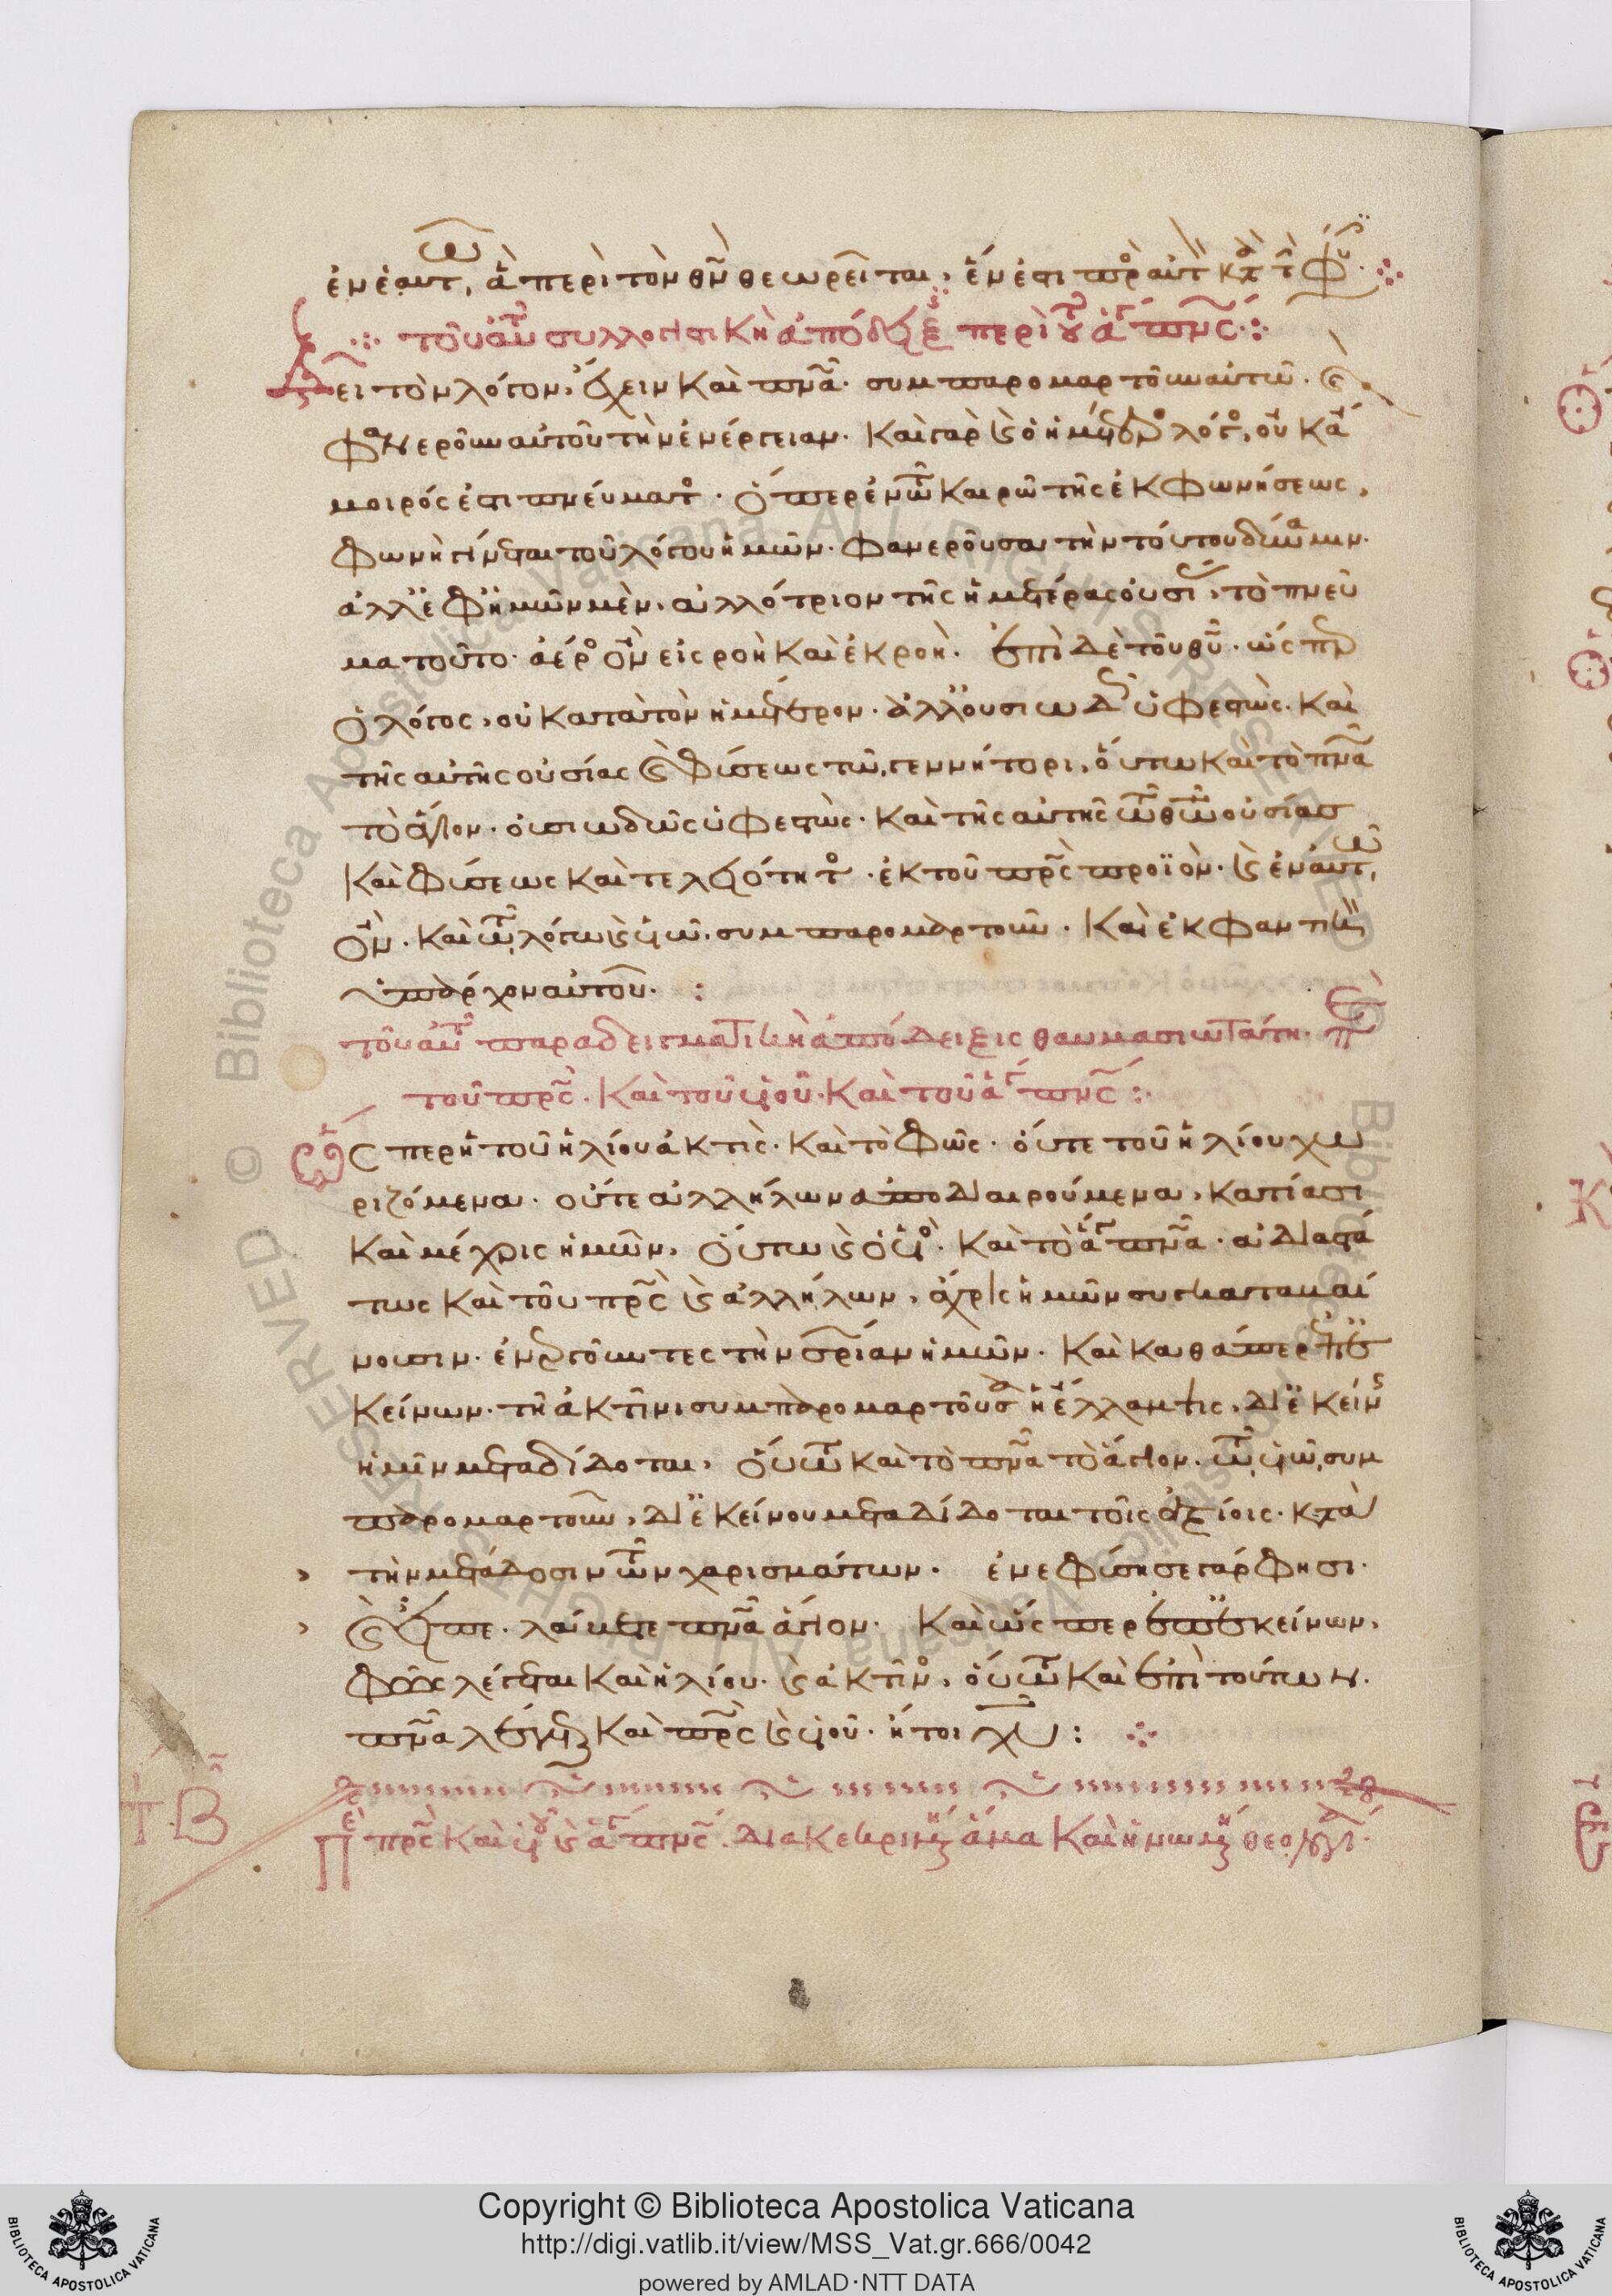 ἐν ἑαυτῷ, ἃ περὶ τὸν θν̅ θεωρεῖται, ἕν ἐστι πρὸς αὐτὴν κατὰ τὴν φύσιν.
τοῦ αὐτοῦ συλλογιστικὴ ἀπόδειξις περὶ τοῦ ἁγίου πνς̅
Δεῖ τὸν λόγον, ἔχειν καὶ πνα̅. συμπαρομαρτοῦν αὐτῷ. καὶ
φανεροῦν αὐτοῦ τὴν ἐνέργειαν. καὶ γὰρ καὶ ὁ ἡμέτερος λόγος, οὐκ ἄ
μοιρός ἐστι πνεύματος. ὅπερ ἐν τῷ καιρῷ τῆς ἐκφωνήσεως,
φωνὴ γίνεται τοῦ λόγου ἡμῶν. φανεροῦσα τὴν τούτου δύναμιν.
ἀλλ' ἐφ' ἡμῶν μὲν, ἀλλότριον τῆς ἡμετέρας οὐσίας, τὸ πνεῦ
μα τοῦτο. ἀέρος ὂν εἰσροὴ καὶ ἐκροή. ἐπὶ δὲ τοῦ θυ̅. ὥσπερ
ὁ λόγος, οὐ κατὰ τὸν ἡμέτερον. ἀλλ' οὐσιωδῶς ὑφεστὼς. καὶ
τῆς αὐτῆς οὐσίας καὶ φύσεως τῷ γεννήτορι, οὕτω καὶ τὸ πνα̅
τὸ ἅγιον. οὐσιωδῶς ὑφεστὼς. καὶ τῆς αὐτῆς τῷ θεῷ οὐσίας
καὶ φύσεως καὶ τελειότητος. ἐκ τοῦ πρς̅ προϊὸν. καὶ ἐν αὐτῷ
ὂν. καὶ τῷ λόγῳ καὶ υἱῷ συμπαρομαρτοῦν. καὶ ἐκφαντικὸν
ὑπάρχον αὐτοῦ.
τοῦ αὐτοῦ παραδειγματικὴ ἀπόδειξις θαυμασιωτάτη. περὶ
τοῦ πρς̅. καὶ τοῦ υἱοῦ. καὶ τοῦ ἁγίου πνς̅:
Ὥσπερ ἡ τοῦ ἡλίου ἀκτὶς. καὶ τὸ φῶς. οὔτε τοῦ ἡλίου χω
ριζόμενα. οὔτε ἀλλήλων ἀποδιαιρούμενα, κατίασι
καὶ μέχρις ἡμῶν, οὕτω καὶ ὁ υἱός. καὶ τὸ ἅγιον πνα̅. ἀδιαστά
τως καὶ τοῦ πρς̅ καὶ ἀλλήλων, ἄχρις ἡμῶν συγκαταβαί
νουσιν. ἐνεργοῦντες τὴν σρίαν ἡμῶν. καὶ καθάπερ ἐπ' ἐ
κείνων. τῇ ἀκτῖνι συμπαρομαρτοῦσα ἡ ἔλλαμψις, δι' ἐκείνης
ἡμῖν μεταδίδοται, οὕτω καὶ τὸ πνα̅ τὸ ἅγιον. τῷ υἱῷ συμ
παρομαρτοῦν, δι' ἐκείνου μεταδίδοται τοῖς ἀξίοις. κατὰ
τὴν μετάδοσιν τῶν χαρισμάτων. ἐνεφύσησε γάρ φησι.
καὶ εἶπε. λάβετε πνα̅ ἅγιον. καὶ ὥσπερ ἐπ' ἐκείνων,
φῶς λέγεται καὶ ἡλίου. καὶ ἀκτῖνος, οὕτω καὶ ἐπὶ τούτων.
πνα̅ λέγεται καὶ πρς̅ καὶ υἱοῦ. ἤτοι χυ̅:
Περὶ πρς̅ καὶ υἱοῦ καὶ ἁγίου πνς̅. διακεκριμένη ἅμα καὶ ἡνωμένη θεολογία.